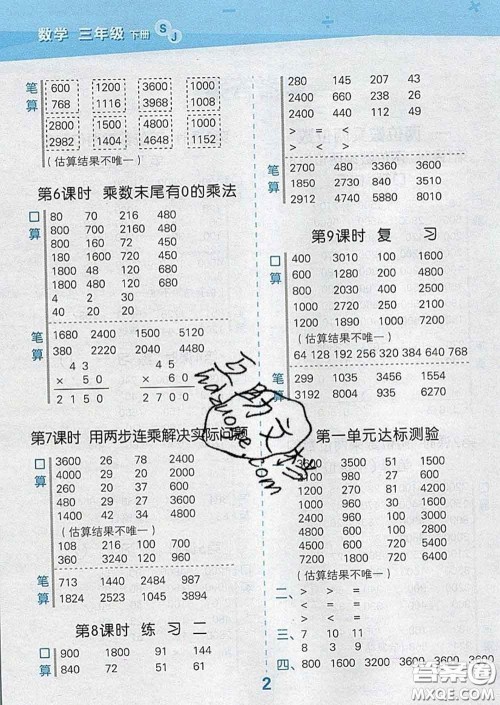 数学 三年级 下册 SJ
笔算
600 1200 3600 1000
768 1116 3968 1008
2800 1500 4800 1000
2982 1404 4648 1152
(估算结果不唯一)
第6课时 乘数末尾有0的乘法
口算
80 70 216 480
800 700 2160 480
800 160 72 450
180 1200 720 540
1800 48 120 560
1800 480 120 560
4 2 30
40 20 20
笔算
1680 2400 1500 5120
380 2220 2040 4480
45 43
× 60 × 50
2700 2150
第7课时 用两步连乘解决实际问题
口算
3600 26 78 2400
4000 26 38 4200
260 20 37 600
290 20 27 6800
1400 42 34 4800
(估算结果不唯一)
108 216 100 90
360 3240 120 960
笔算
713 1440 2484 987
1824 2523 1045 3894
第8课时 练习二
口算
900 1800 91 144
840 72 51 61
280 145 207 43
2400 660 238 26
2400 440 112 49
> < >
= < <
笔算
2700 480 3360 3600
1850 2730 840 3510
3192 4640 5880 8010
第9课时 复习
口算
400 3010 100 1600
600 1280 200 4800
800 2030 400 2500
1000 1200 100 3600
1200 1890 1000 7200
(估算结果不唯一)
64 128 192 256 320 384 640 768
笔算
299 1035 3456 1554
3192 8004 935 2961
第一单元达标测验
3500 51 1500
980 27 600
1000 960 30 1600
2000 840 31 1800
4000 980 100 5400
4500 600 720 5400
7200 1500 720 6400
(估算结果不唯一)
二、> > =
< < =
三、7 10 11
8 3 9
四、800 1600 3200 3600 3600
2
互助文档
huzuone.com
答案圈
MXQE.COM